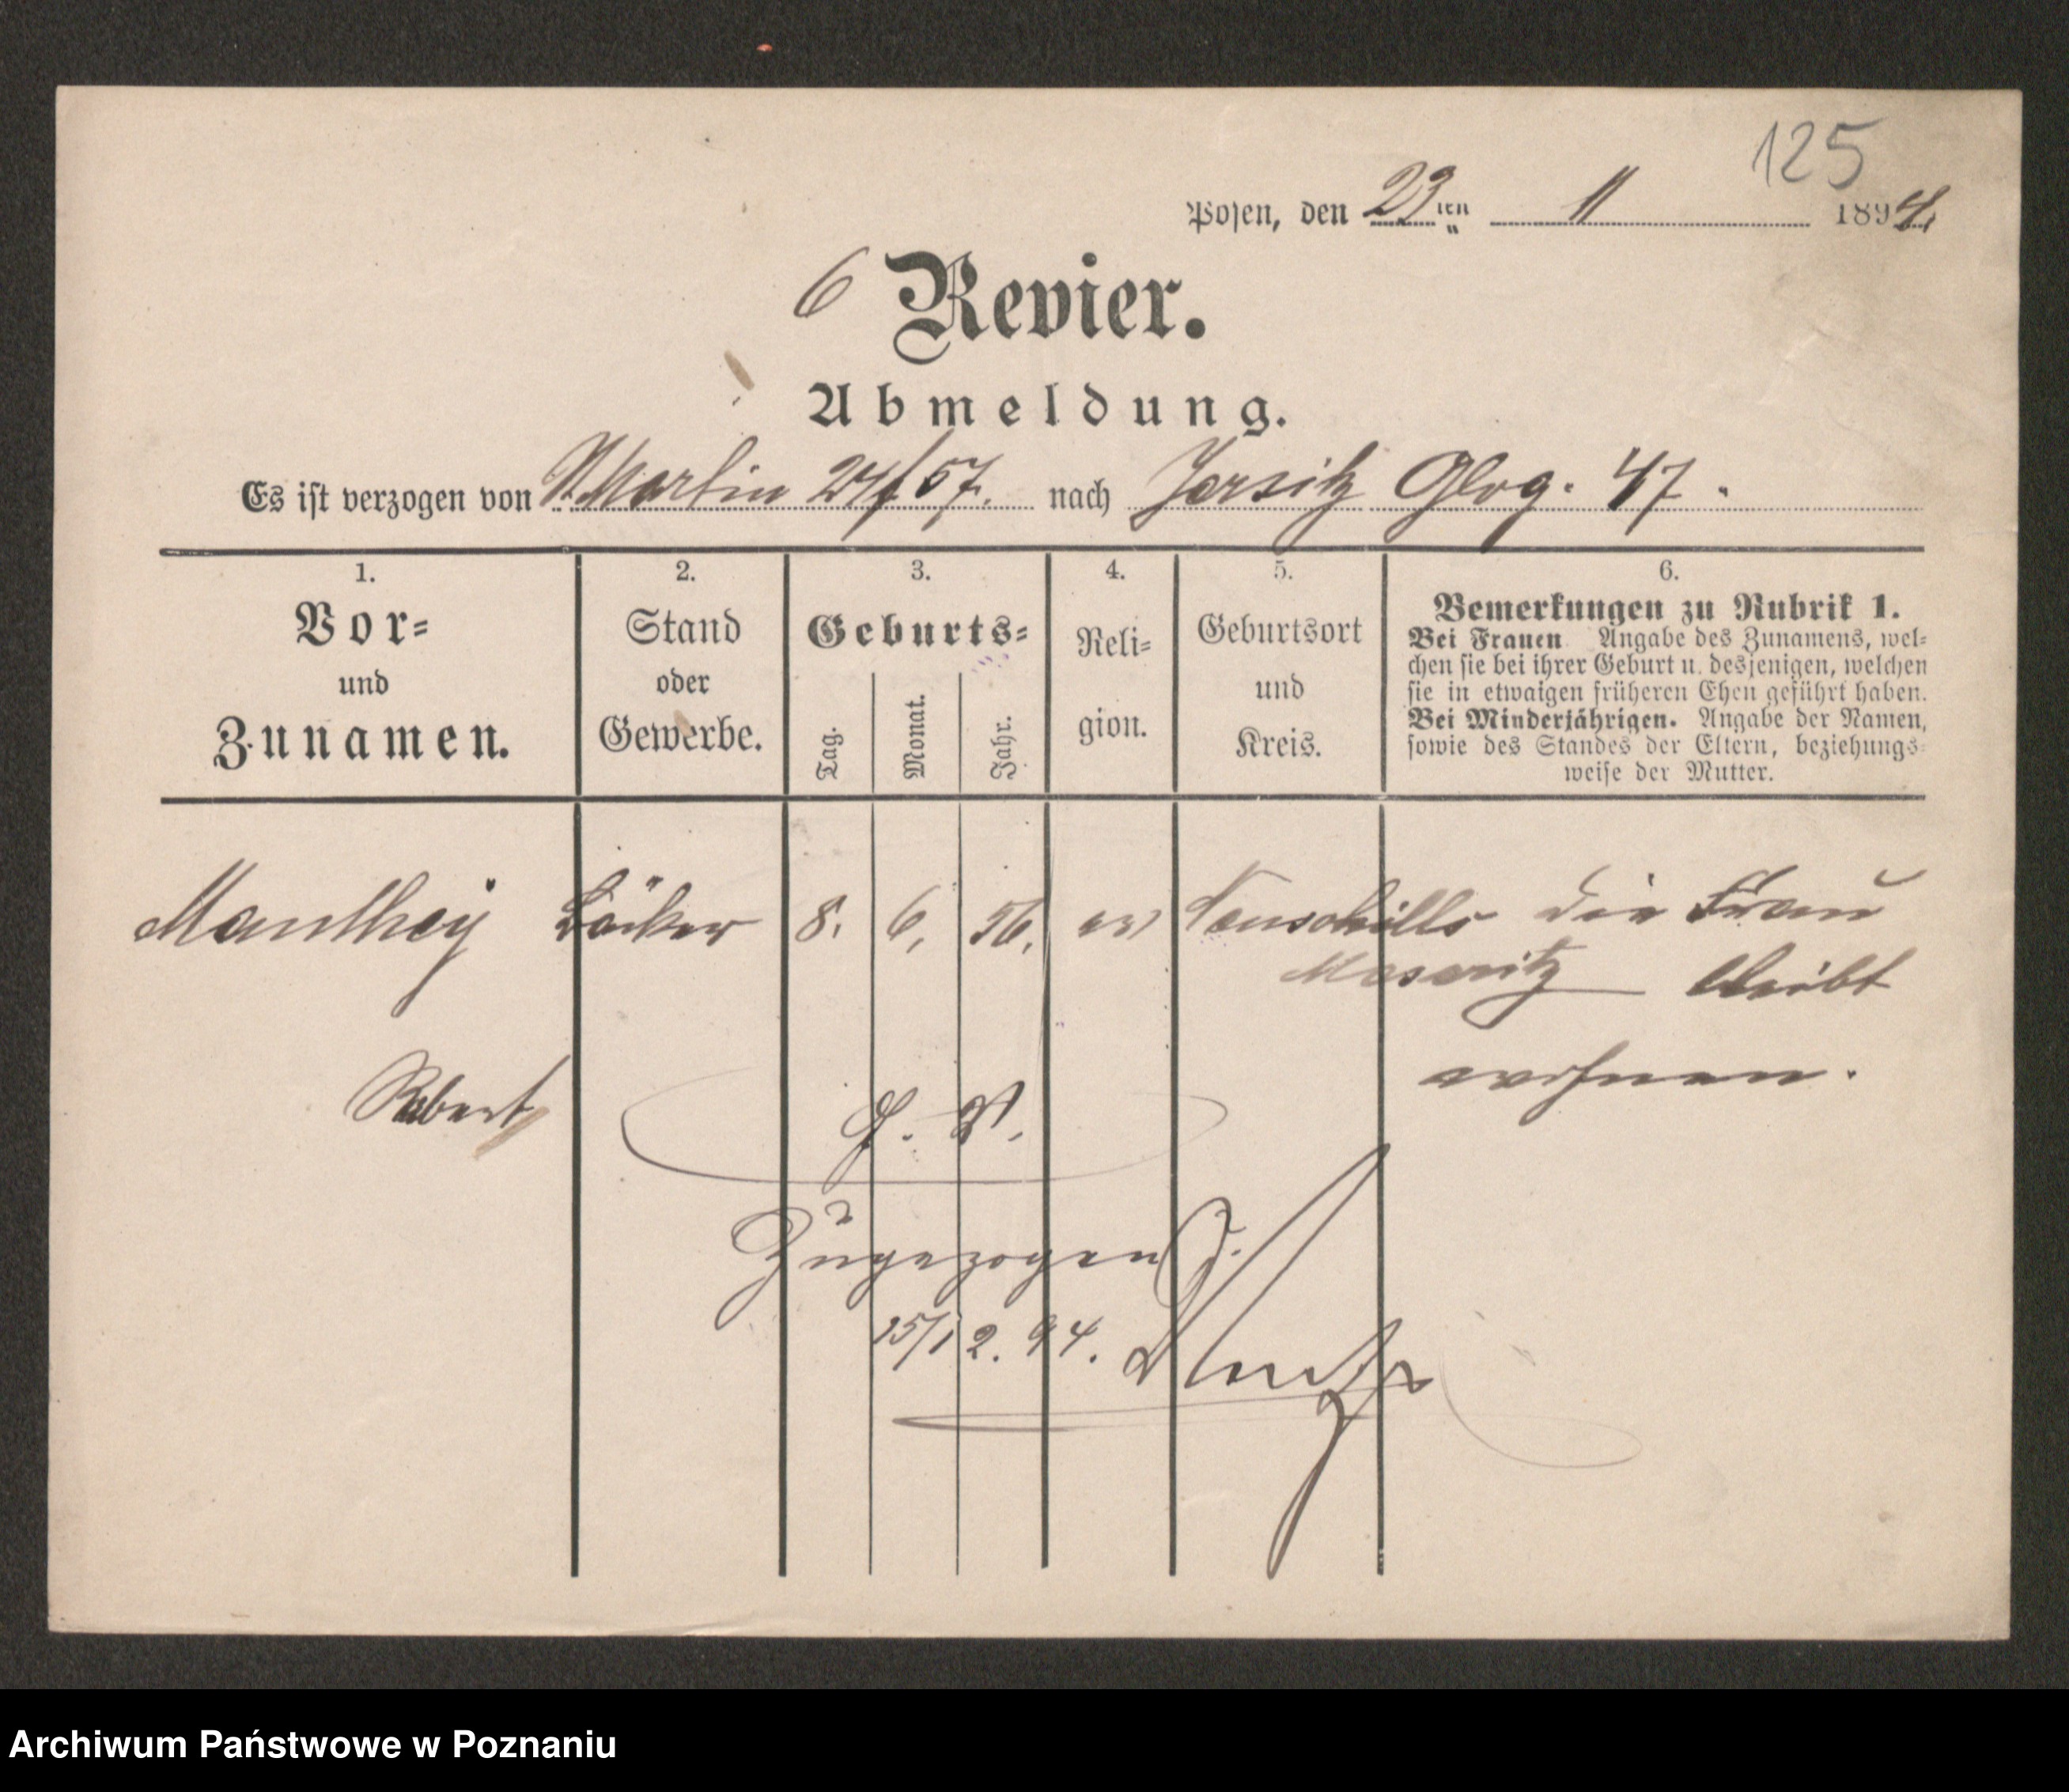 125
Posen, den 23ten 11 1894.
6 Revier.
Abmeldung.
Es ist verzogen von St. Martin 24/57. nach Jersitz Glog. 47.
1. 2. 3. 4. 5. 6.
Vor- und Zunamen.
Stand oder Gewerbe.
Geburts-
Tag. Monat. Jahr.
Reli-
gion.
Geburtsort und Kreis.
Bemerkungen zu Rubrik 1.
Bei Frauen Angabe des Zunamens, wel-
chen sie bei ihrer Geburt u. desjenigen, welchen
sie in etwaigen früheren Ehen geführt haben.
Bei Minderjährigen. Angabe der Namen,
sowie des Standes der Eltern, beziehungs-
weise der Mutter.
Manthey Bäcker 8. 6. 56. ev die Frau
Meseritz bleibt
Robert wohnen.
Zugezogen
15/12. 94.
Archiwum Państwowe w Poznaniu